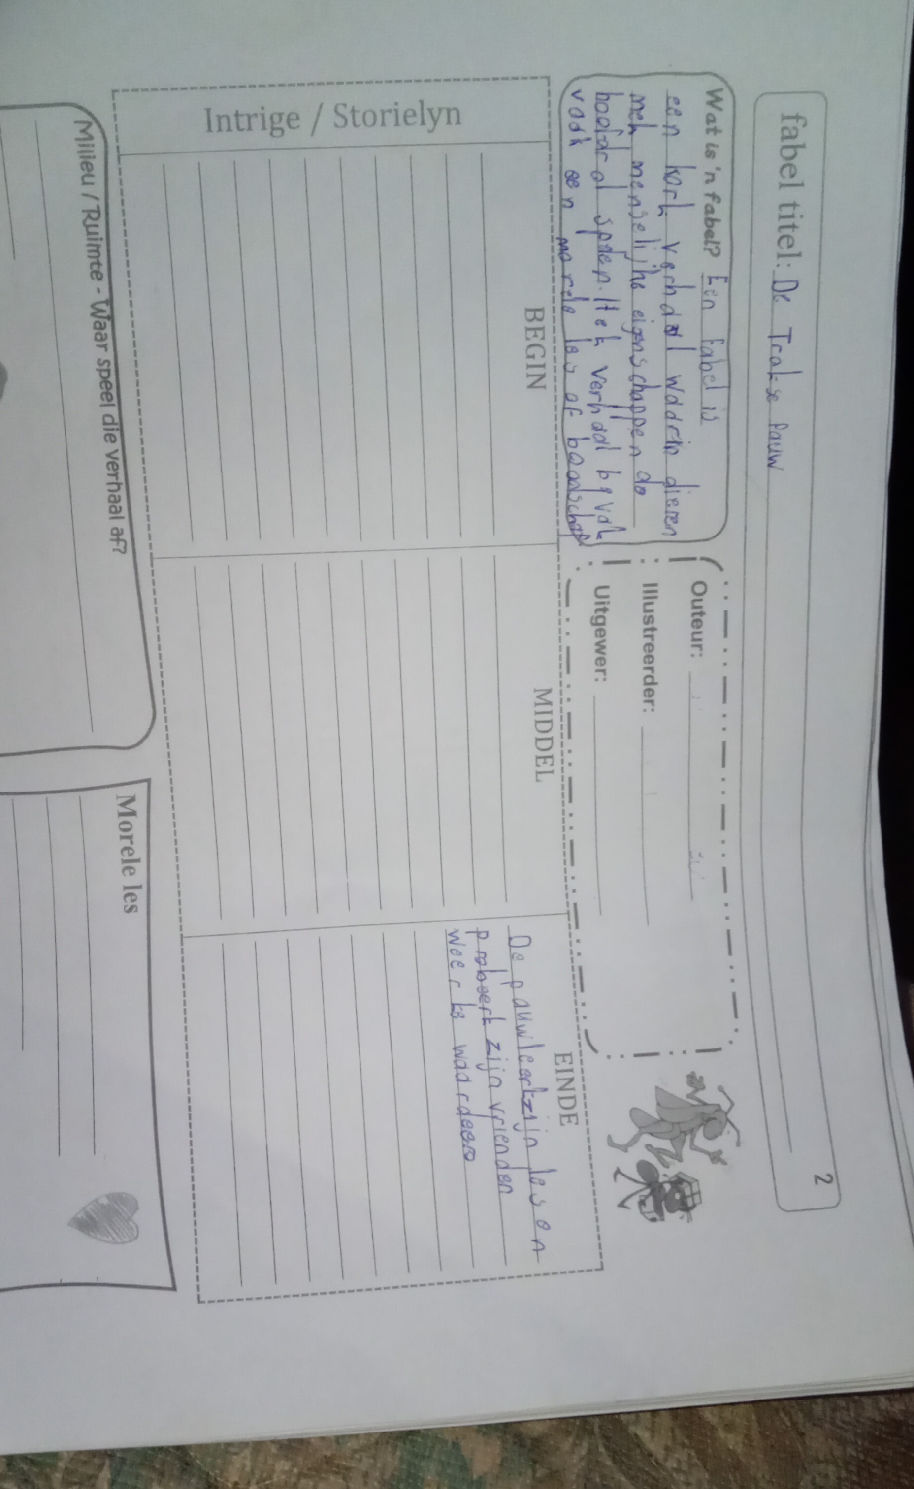 2
fabel titel: De Trotse Pauw
Wat is 'n fabel? Een fabel is
een kort verhaal waarin dieren
met menselijke eigenschappen de
hoofdrol spelen. Het verhaal bevat
vaak een morele les of boodschap
Outeur:
Illustreerder:
Uitgewer:
Intrige / Storielyn
BEGIN
MIDDEL
EINDE
De pauw leert zijn les en
probeert zijn vrienden
weer te
Milieu / Ruimte - Waar speel die verhaal af?
Morele les